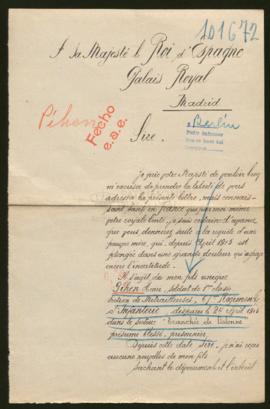 101672
A Sa Majesté le Roi d'Espagne
Palais Royal
Madrid
Berlin
Péhen
Fecho
e.a.e.
Sire.
Je prie votre Majesté de vouloir bien
m'excuser de prendre la liberté de vous
adresser la présente lettre, mais connais-
sant tant en France que par renom
votre royale bonté, je suis certaine d'avance
que vous donnerez suite à la requête d'une
pauvre mère qui, depuis Avril 1915 est
plongée dans une grande douleur qu'est
encore l'incertitude.
Il s'agit de mon fils unique
Péhen soldat de 1ère classe
Section de Mitrailleuses, 67e Régiment
d'Infanterie disparu le 24 avril 1915
dans le secteur tranchée de Calonne
présumé blessé, prisonnier.
Depuis cette date Sire, je n'ai reçu
aucunes nouvelles de mon fils
Sachant le dévouement et l'intérêt